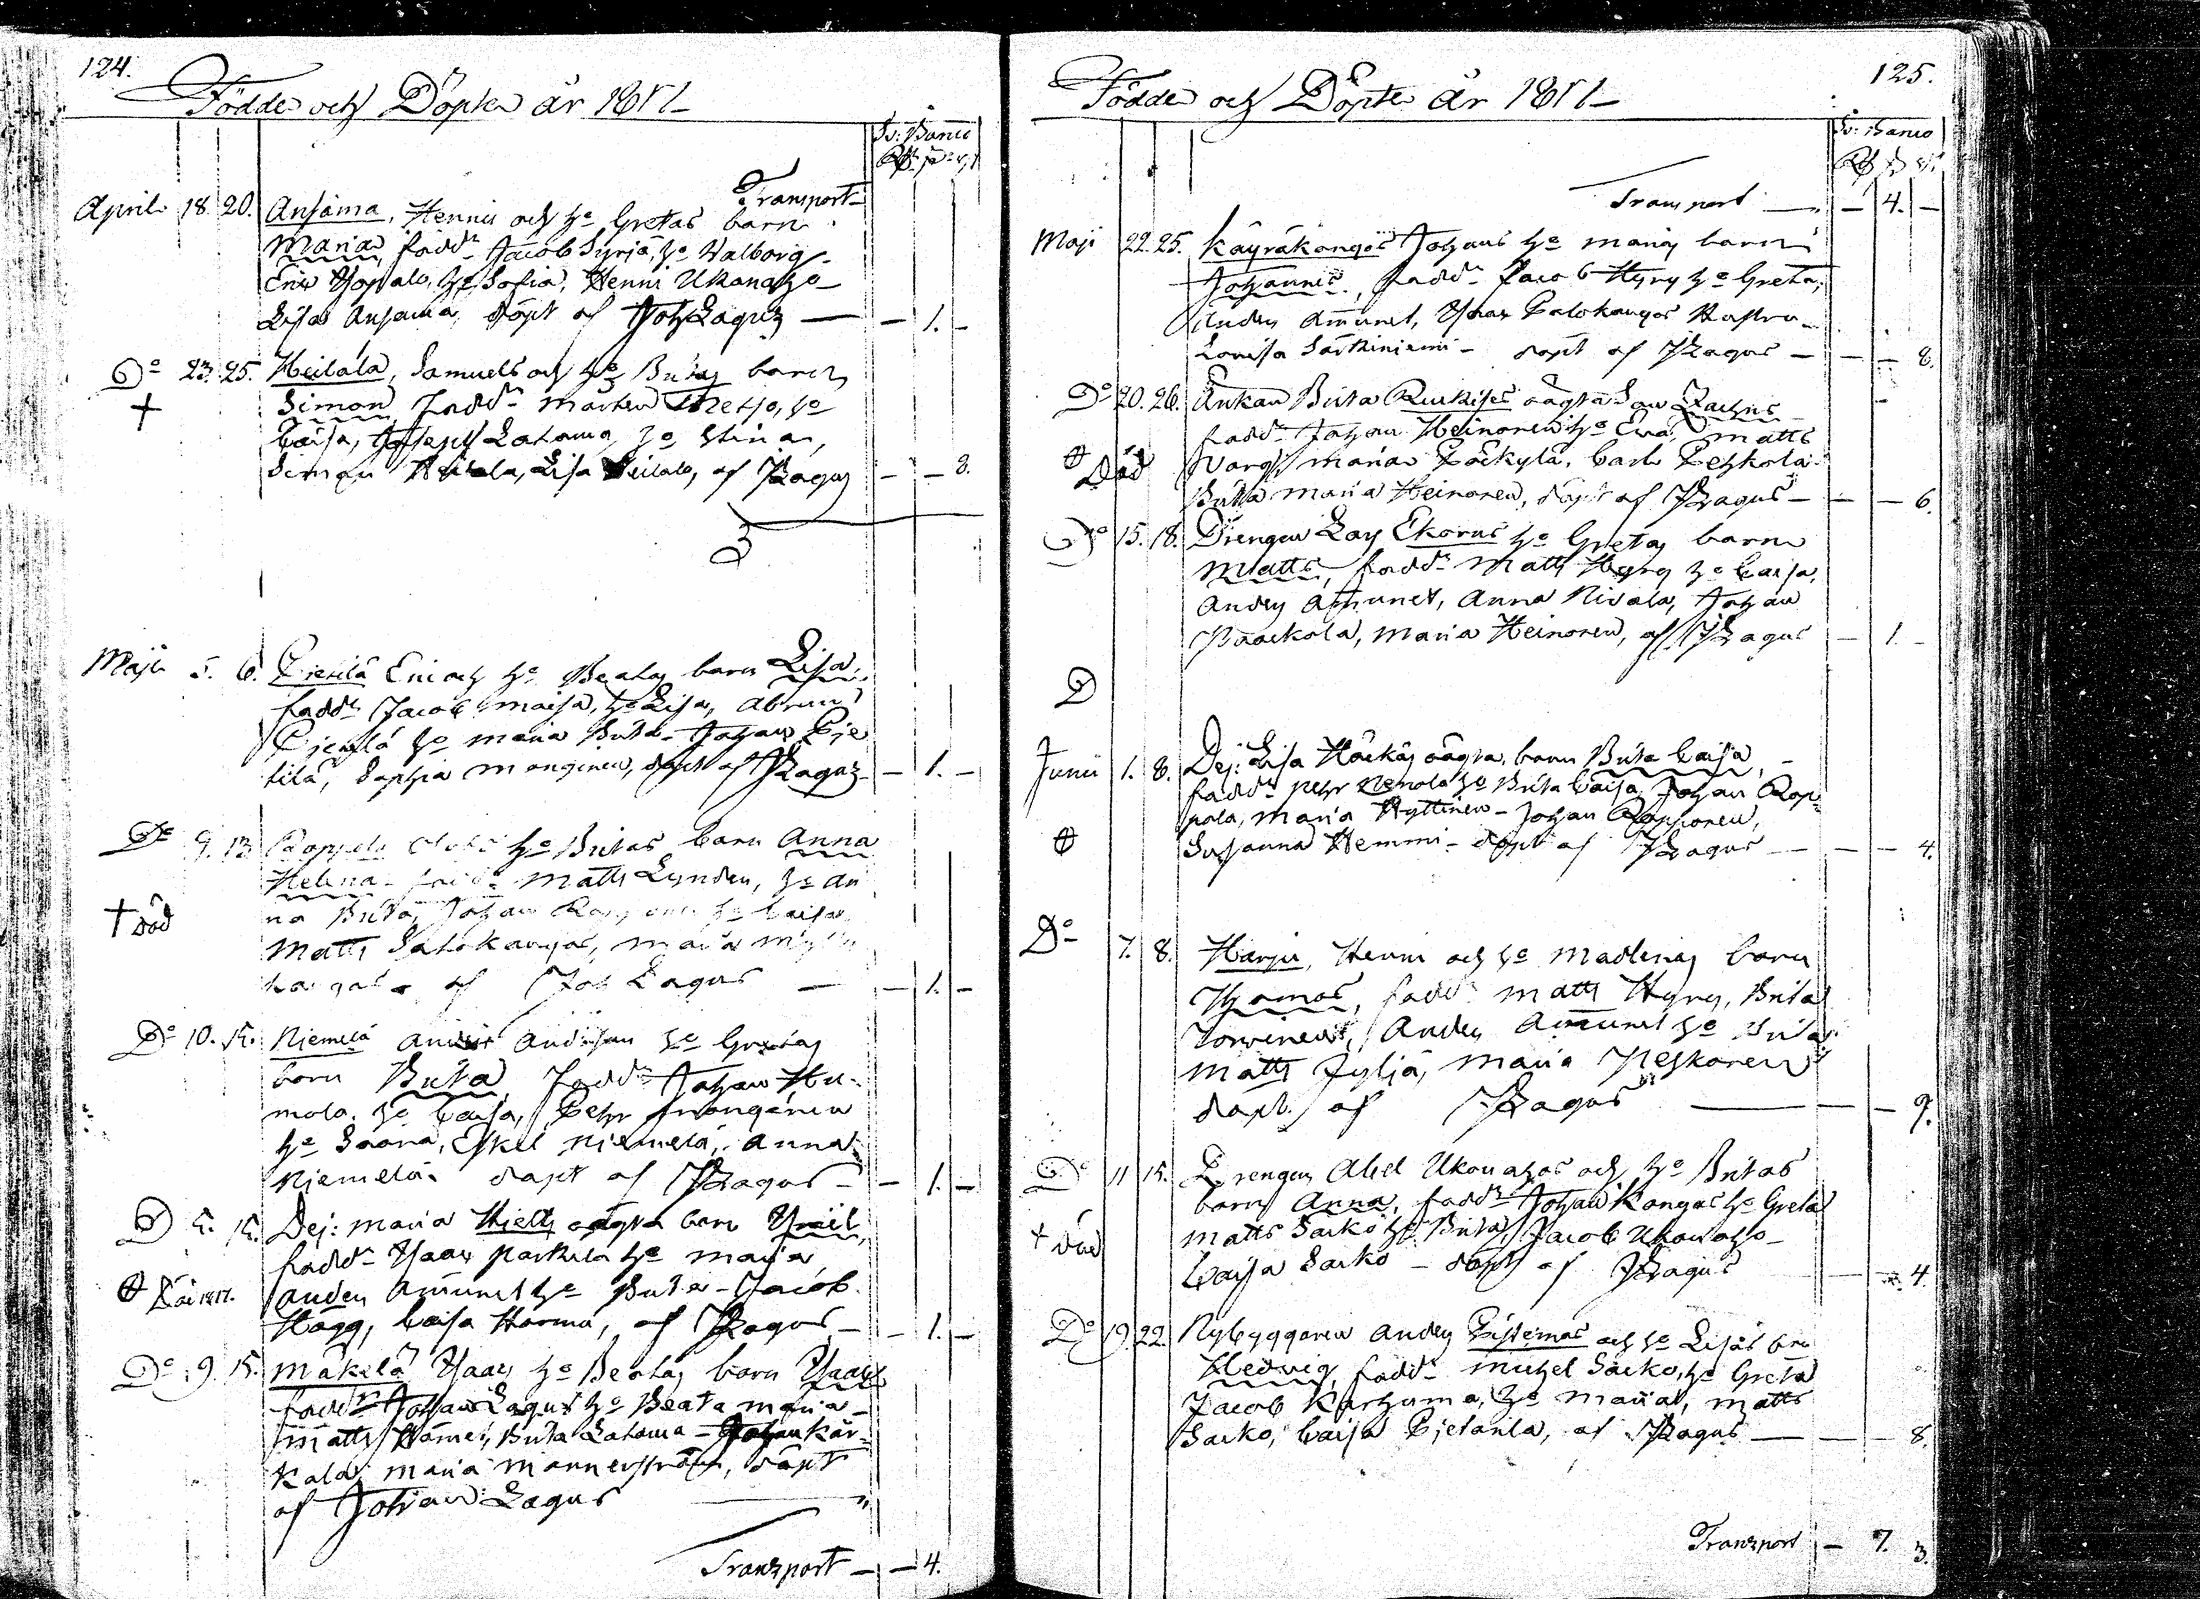 124.
Födde och Döpte år 1811
Sv: Banco
Transport
April 18. 20. Ansama, Henric och h:o Gretas barn
Maria, fadd:r Jacob Syrjä, h:o Walborg
Eric Yopalo, h:o Sofia, Henric Ukonaho
Lisa Ansama, döpt af Joh Lagus — — 1. —
D:o 23. 25. Heilala, Samuels och h:o Britas barn
+ Simon, fadd:r Mårten h:o
Caisa, Joseph Lahama, h:o Stina,
Simon Heilala, Lisa Heilala, af J Lagus — — 8.
Maji 5. 6. Pietilä Eric och h:o Beatas barn Lisa,
fadd:r Jacob Maisa, h:o Lisa, Abram
Pjetilä h:o Maria Brita - Johan Pie
tilä, Sophia Manginen, döpt af J Lagus — 1. —
D:o 9. 13. h:o Britas barn Anna
Helena - fadd:r Matts Lunden, h:o An
+ död na Brita, Johan h:o Caisa
Matts Salokangas, Maria
kangas - af Joh Lagus — — 1. —
D:o 10. 15. Niemelä Anders Andersson h:o Gretas
barn Brita, fadd:r Johan Hu-
mola, h:o Caisa, Pehr Manginen
h:o Saara, Eskel Niemelä, Anna
Niemelä. döpt af J Lagus — — 1. —
D 5. 15. Dej: Maria Hjelts oägta barn
fadd:r Isaac Parkila h:o Maria
död 1817. Anders Amunet h:o Brita - Jacob
Hägg, Caisa Harma, af J Lagus — — 1. —
D:o 9. 15. Mäkelä Isaacs h:o Beatas barn Isaac
fadd:r Johan Lagus h:o Beata Maria -
Matts Hämei, Brita Lahama - Johan Kär-
kala, Maria Mannerström, döpt
af Johan Lagus — "
Transport — — 4.
125.
Födde och Döpte år 1811
Sv: Banco
Transport — — 4. —
Maji 22. 25. Käyräkangas Johans h:o Marias barn
Johannes, fadd:r Jacob Hyry h:o Greta,
Anders Amunet, Isaac Palokangas Hustru
Lovisa Särkiniemi - döpt af J Lagus — — — 8.
D:o 20. 26. Änkan Brita Ruikijes oägta Son Zachris
fadd:r Johan Heinonen h:o Eva, Matts
Död Varg, Maria Päckylä, Carl Peskola
Brita Maria Heinonen, döpt af J Lagus — — — 6.
D:o 15. 18. Drengen Lars Ekorns h:o Gretas barn
Matts, fadd:r Matts Hyry h:o Caisa,
Anders Amunet, Anna Nivala, Johan
Paackola, Maria Heinonen, af J Lagus — 1. —
D
Junii 1. 8. Dej: Lisa Häckäs oägta barn Brita Caisa,
fadd:r Pehr Nemola h:o Brita Caisa, Johan Rop-
pola, Maria Hyttinen - Johan Rapponen,
Susanna Hemmi - döpt af J Lagus — — — 4.
D:o 7. 8. Harju, Henric och h:o Madlenas barn
Thomas, fadd:r Matts Hyry, Brita
Torvinen, Anders Amunet h:o Brita
Matts Jyljä, Maria Neskonen
döpt af J Lagus — — — 9.
D:o 11 15. Drengen Abel Ukonahos och h:o Britas
barn Anna, fadd:r Johan Kangas h:o Greta
+ död Matts Sarko h:o Brita, Jacob Ukonaho -
Caisa Sarko - döpt af J Lagus — 4.
D:o 19. 22. Nybyggaren Anders Pistemas och h:o Lisas brn
Hedvig, fadd:r Michel Sarko, h:o Greta
Jacob Karhuma, h:o Maria, Matts
Sarko, Caisa Pjetanla, af J Lagus — — — 8.
Transport — 7. 3.